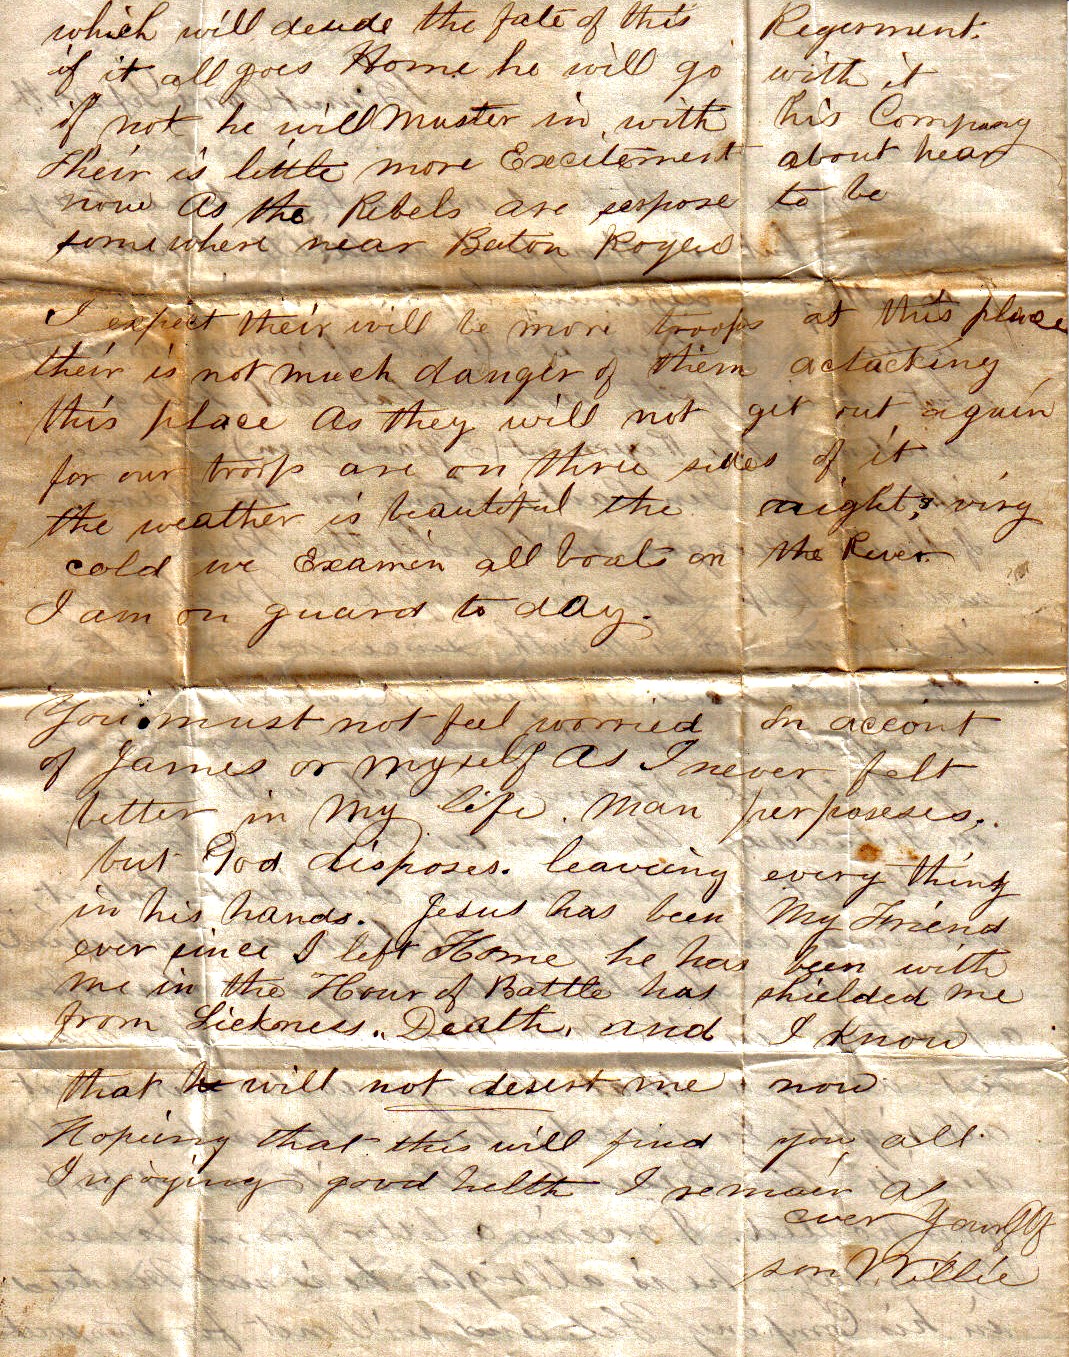 which will deside the fate of this Regerment.
if it all goes Home he will go with it
if not he will Muster in with his Company
Their is little more Excitement about hear
now as the Rebels are serpose to be
some where near Baton Roges
I expect their will be more troops at this place
their is not much danger of them actacking
this place As they will not get out again
for our troops are on three sides of it
the weather is beautiful the nights very
cold we Examin all boats on the River.
I am on guard to day.
You must not feel worried on account
of James or myself As I never felt
better in My life. Man perposeses.
but God disposes. leaveing every thing
in his hands. Jesus has been My Friend
ever since I left Home he has been with
me in the Hour of Battle has shielded me
from Sickness, Death, and I Know
that he will not desert me now
Hopeing that this will find you all
Injoying good helth I remain as
ever Your
son Willie